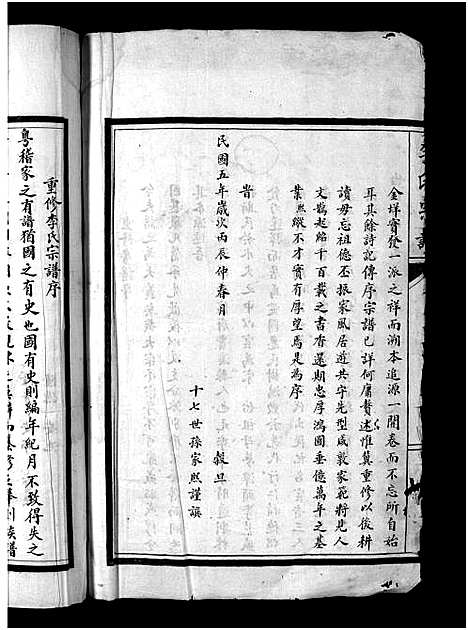 李氏宗譜
金垟實發一派之祥而溯本追源一開卷而不忘所自始
耳其餘詩記傳序宗譜已詳何庸贅述惟冀重修以後耕
讀毋忘祖德丕振家風居遊共守先型咸敦家範將見人
文鵲起綿千百載之書香還期忠厚鴻圖垂億萬年之基
業熙蹤不才實有厚望焉是為序
旹
民國五年歲次丙辰仲春月
穀旦
十七世孫家熙謹譔
重修李氏宗譜序
粵稽家之有譜猶國之有史也國有史則編年紀月不致得失之